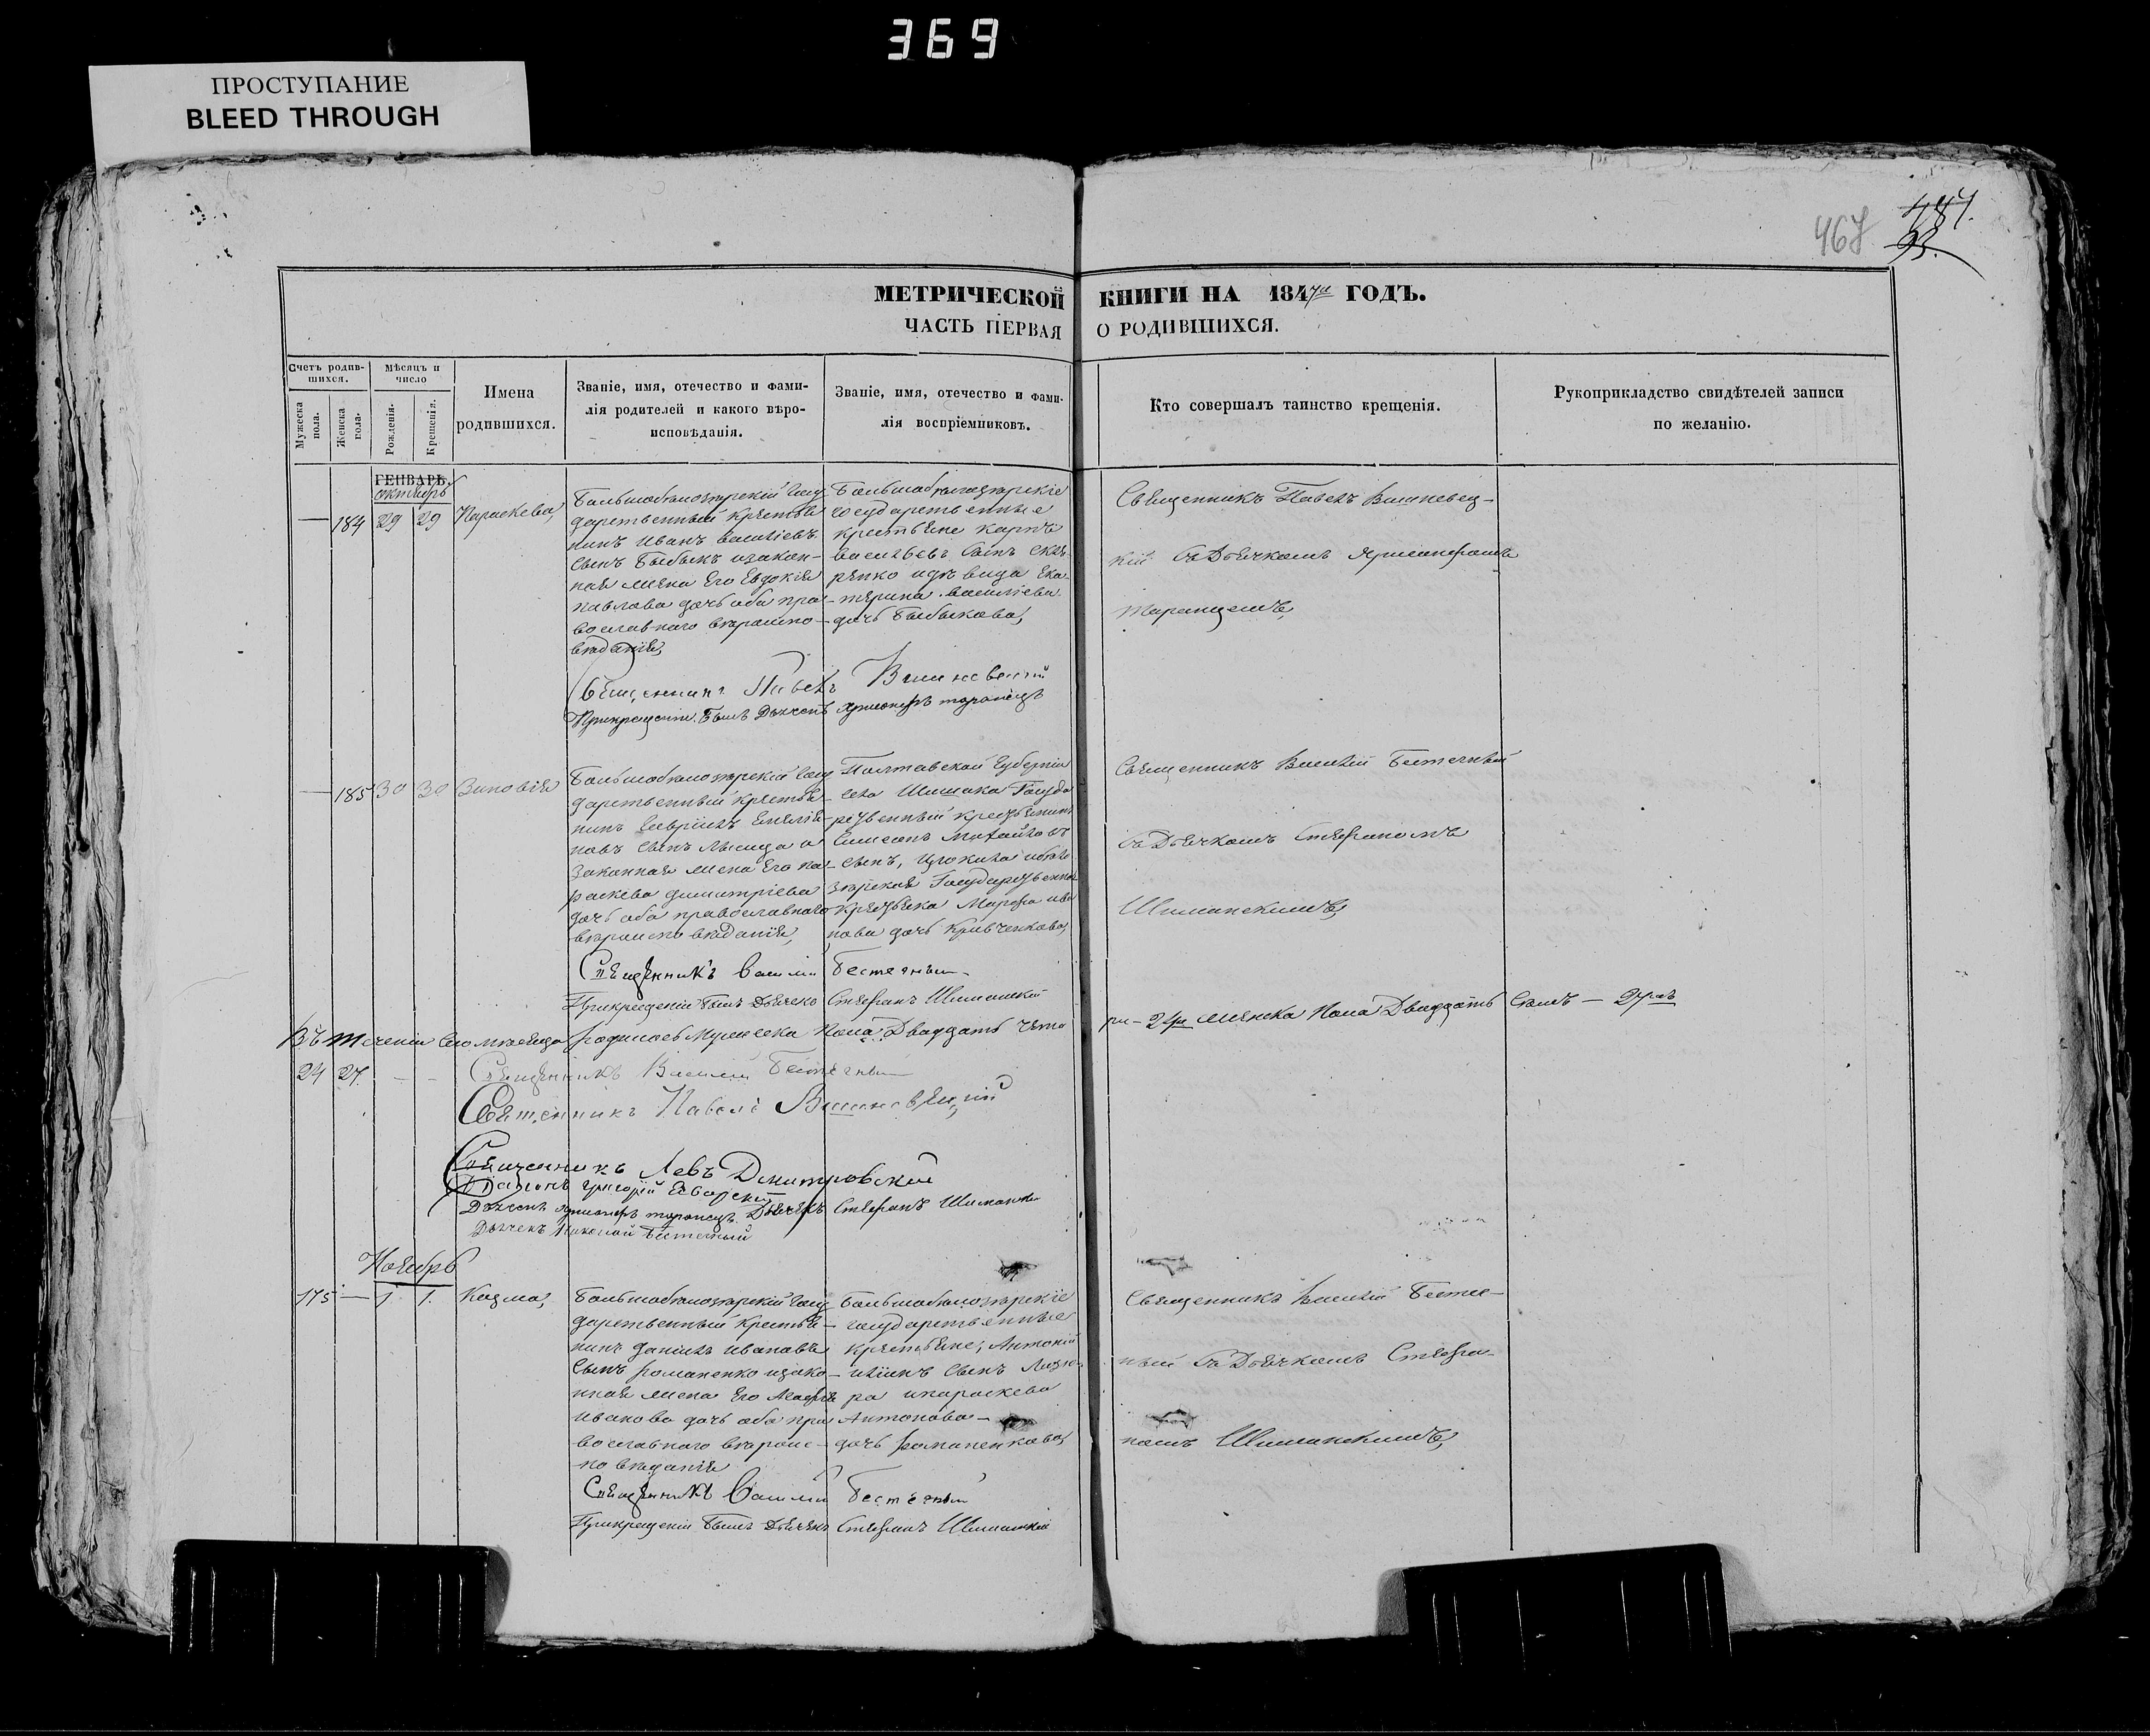 369
ПРОСТУПАНИЕ
BLEED THROUGH
467
487.
93.
МЕТРИЧЕСКОЙ КНИГИ НА 1847й ГОДЪ.
ЧАСТЬ ПЕРВАЯ О РОДИВШИХСЯ.
Счетъ родив-
шихся.
Мужеска пола.
Женска пола.
Мѣсяцъ и
число
Рожденія.
Крещенія.
Имена
родившихся.
Званіе, имя, отечество и фами-
лія родителей и какого вѣро-
исповѣданія.
Званіе, имя, отечество и фами-
лія воспріемниковъ.
Кто совершалъ таинство крещенія.
Рукоприкладство свидѣтелей записи
по желанію.
ГЕНВАРЬ
октябрь
— 184 29 29 Параскева,
Большобѣлозѣрскій госу
дарственный крестья
нинъ Иванъ Василіевъ
сынъ Быбыкъ изакон-
ная жена Его Евдокія
павлова дочь оба пра-
вославного вѣроиспо-
вѣданія,
Большобѣлозѣрскіе
государственные
крестьяне карпъ
васильевъ сынъ
рѣпко идѣвица Ека-
терина василіева
дочь Быбыкова,
Священникъ Павелъ Вишневец-
кій съ Дьячкомъ
Таранцемъ,
Священникъ Павелъ Вишневецкій
Прикрещеніи былъ Дьячекъ
— 185 30 30 Зиновія
Большобѣлозѣрскій госу
дарственный крестья-
нинъ Гаврінлъ Емелія-
новъ сынъ Лисица и
законная жена Его па-
раскева димитріева
дочь оба православнаго
вѣроисповѣданія,
Полтавской Губерніи
села Шишака Госуда
рственный крестьянинъ
Симеонъ Михайловъ
сынъ,
зѣрская Государственная
крестьянка Марфа ива
нова дочь Кривченкова,
Священникъ Василій Бестечный
съ Дьячкомъ Стефаномъ
Шиманскимъ,
Священникъ Василій Бестечный
Прикрещеніи былъ Дьячекъ Стефанъ Шиманскій
Въ теченіи сего мѣсяца родилось Мужеска Пола Двадцать четы
ри - 24ри Женска Пола Двадцать Семъ — 27мъ
24 27 — —
Священникъ Василій Бестечный
Священникъ Павелъ Вишневецкій
Священникъ Левъ Дмитровскій
Діаконъ Григорій
Дьячекъ Дьячекъ Стефанъ Шиманскій
Дьячекъ Николай Бестечный
Ноябрь
175 — 1 1. Козма,
Большобѣлозѣрскій госу
дарственный крестья-
нинъ Даніилъ Ивановъ
сынъ романенко изако-
нная жена Его Марія
Иванова дочь оба пра
вославного вѣроис-
повѣданія
Большобѣлозѣрскіе
государственные
крестьяне, Антоній
иліинъ сынъ
ра ипараскева
Антонова-
дочь романенкова,
Священникъ Василій Бестеч-
ный съ Дьячкомъ Стефа-
номъ Шиманскимъ,
Священникъ Василій Бестечный
Прикрещеніи былъ Дьячекъ Стефанъ Шиманскій